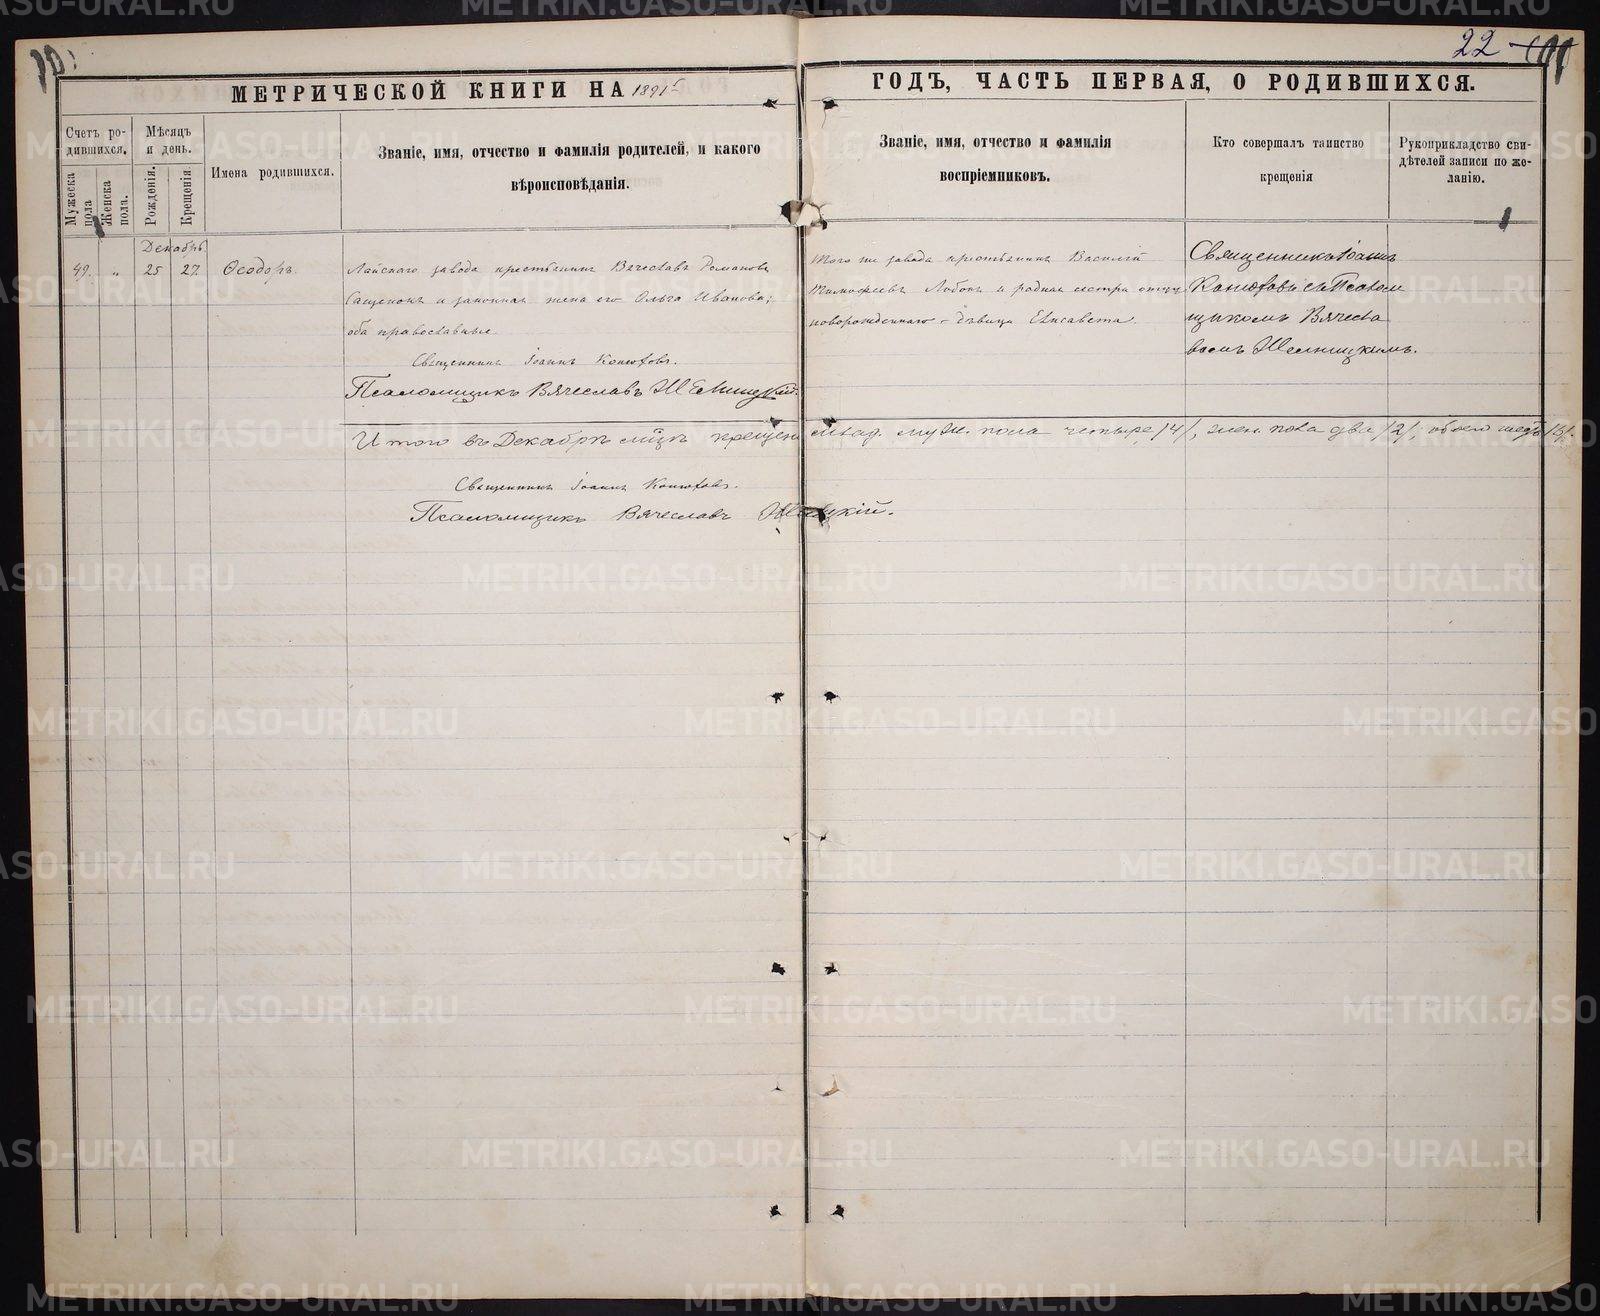 22
МЕТРИЧЕСКОЙ КНИГИ НА 1891 ГОДЪ, ЧАСТЬ ПЕРВАЯ, О РОДИВШИХСЯ.
Счетъ ро-
дившихся.
Мужеска
пола
Женска
пола.
Мѣсяцъ
и день.
Рожденія.
Крещенія
Имена родившихся.
Званіе, имя, отчество и фамилія родителей, и какого
вѣроисповѣданія.
Званіе, имя, отчество и фамилія
воспріемниковъ.
Кто совершалъ таинство
крещенія
Рукоприкладство сви-
дѣтелей записи по же-
ланію.
Декабрь
49. " 25 27 Ѳеодоръ.
Лайскаго завода крестьянинъ Вячеславъ Романовъ
и законная жена его Ольга Иванова;
оба православные
Священникъ Іоаннъ Конюховъ.
Псаломщикъ Вячеславъ
Того же завода крестьянинъ Василій
Тимофеевъ и родная сестра отца
новорожденнаго – дѣвица Елисавета
Священникъ Іоаннъ
Конюховъ съ Псалом
щикомъ Вячесла
вомъ
Итого въ Декабрѣ мѣсяцѣ крещено млад. муж. пола четыре /4/, жен. пола два /2/, обоего
Священникъ Іоаннъ Конюховъ.
Псаломщикъ Вячеславъ
METRIKI.GASO-URAL.RU